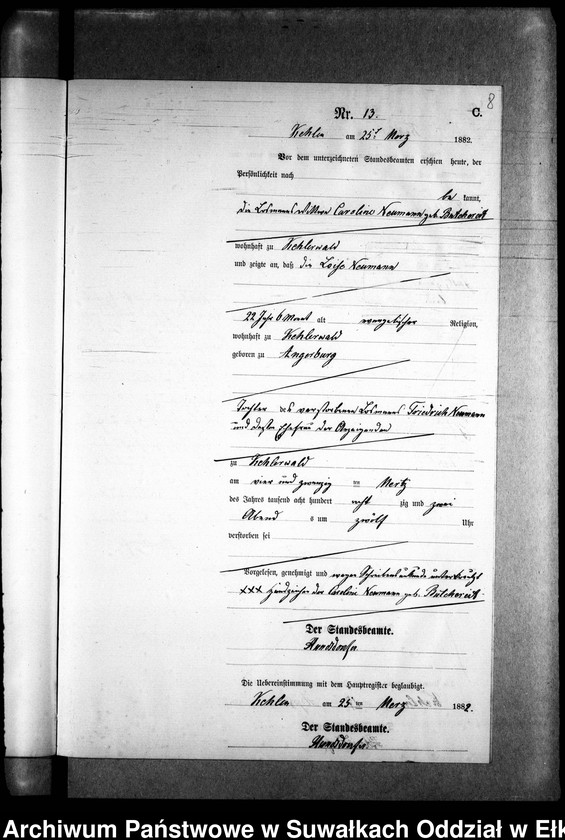 8
Nr. 13. C.
Kehlen am 25t Merz 1882.
Vor dem unterzeichneten Standesbeamten erschien heute, der
Persönlichkeit nach
be kannt,
die Losmanns Wittwe Caroline Neumann geb.
wohnhaft zu Kehlerwald
und zeigte an, daß die Loise Neumann
22 Jahr 6 Monat alt evangelischer Religion,
wohnhaft zu Kehlerwald
geboren zu Angerburg
Tochter des verstorbenen Losmanns Friedrich Neumann
und desen Ehefrau der Anzeigenden
zu Kehlerwald
am vier und zwanzig ten Mertz
des Jahres tausend acht hundert acht zig und zwei
Abend s um zwölf Uhr
verstorben sei
Vorgelesen, genehmigt und wegen Schreibensunkunde unterkreuzt
XXX Handzeichen der Caroline Neumann geb.
Der Standesbeamte.
Die Uebereinstimmung mit dem Hauptregister beglaubigt.
Kehlen am 25 ten Merz 1882.
Der Standesbeamte.
Archiwum Państwowe w Suwałkach Oddział w Ełk